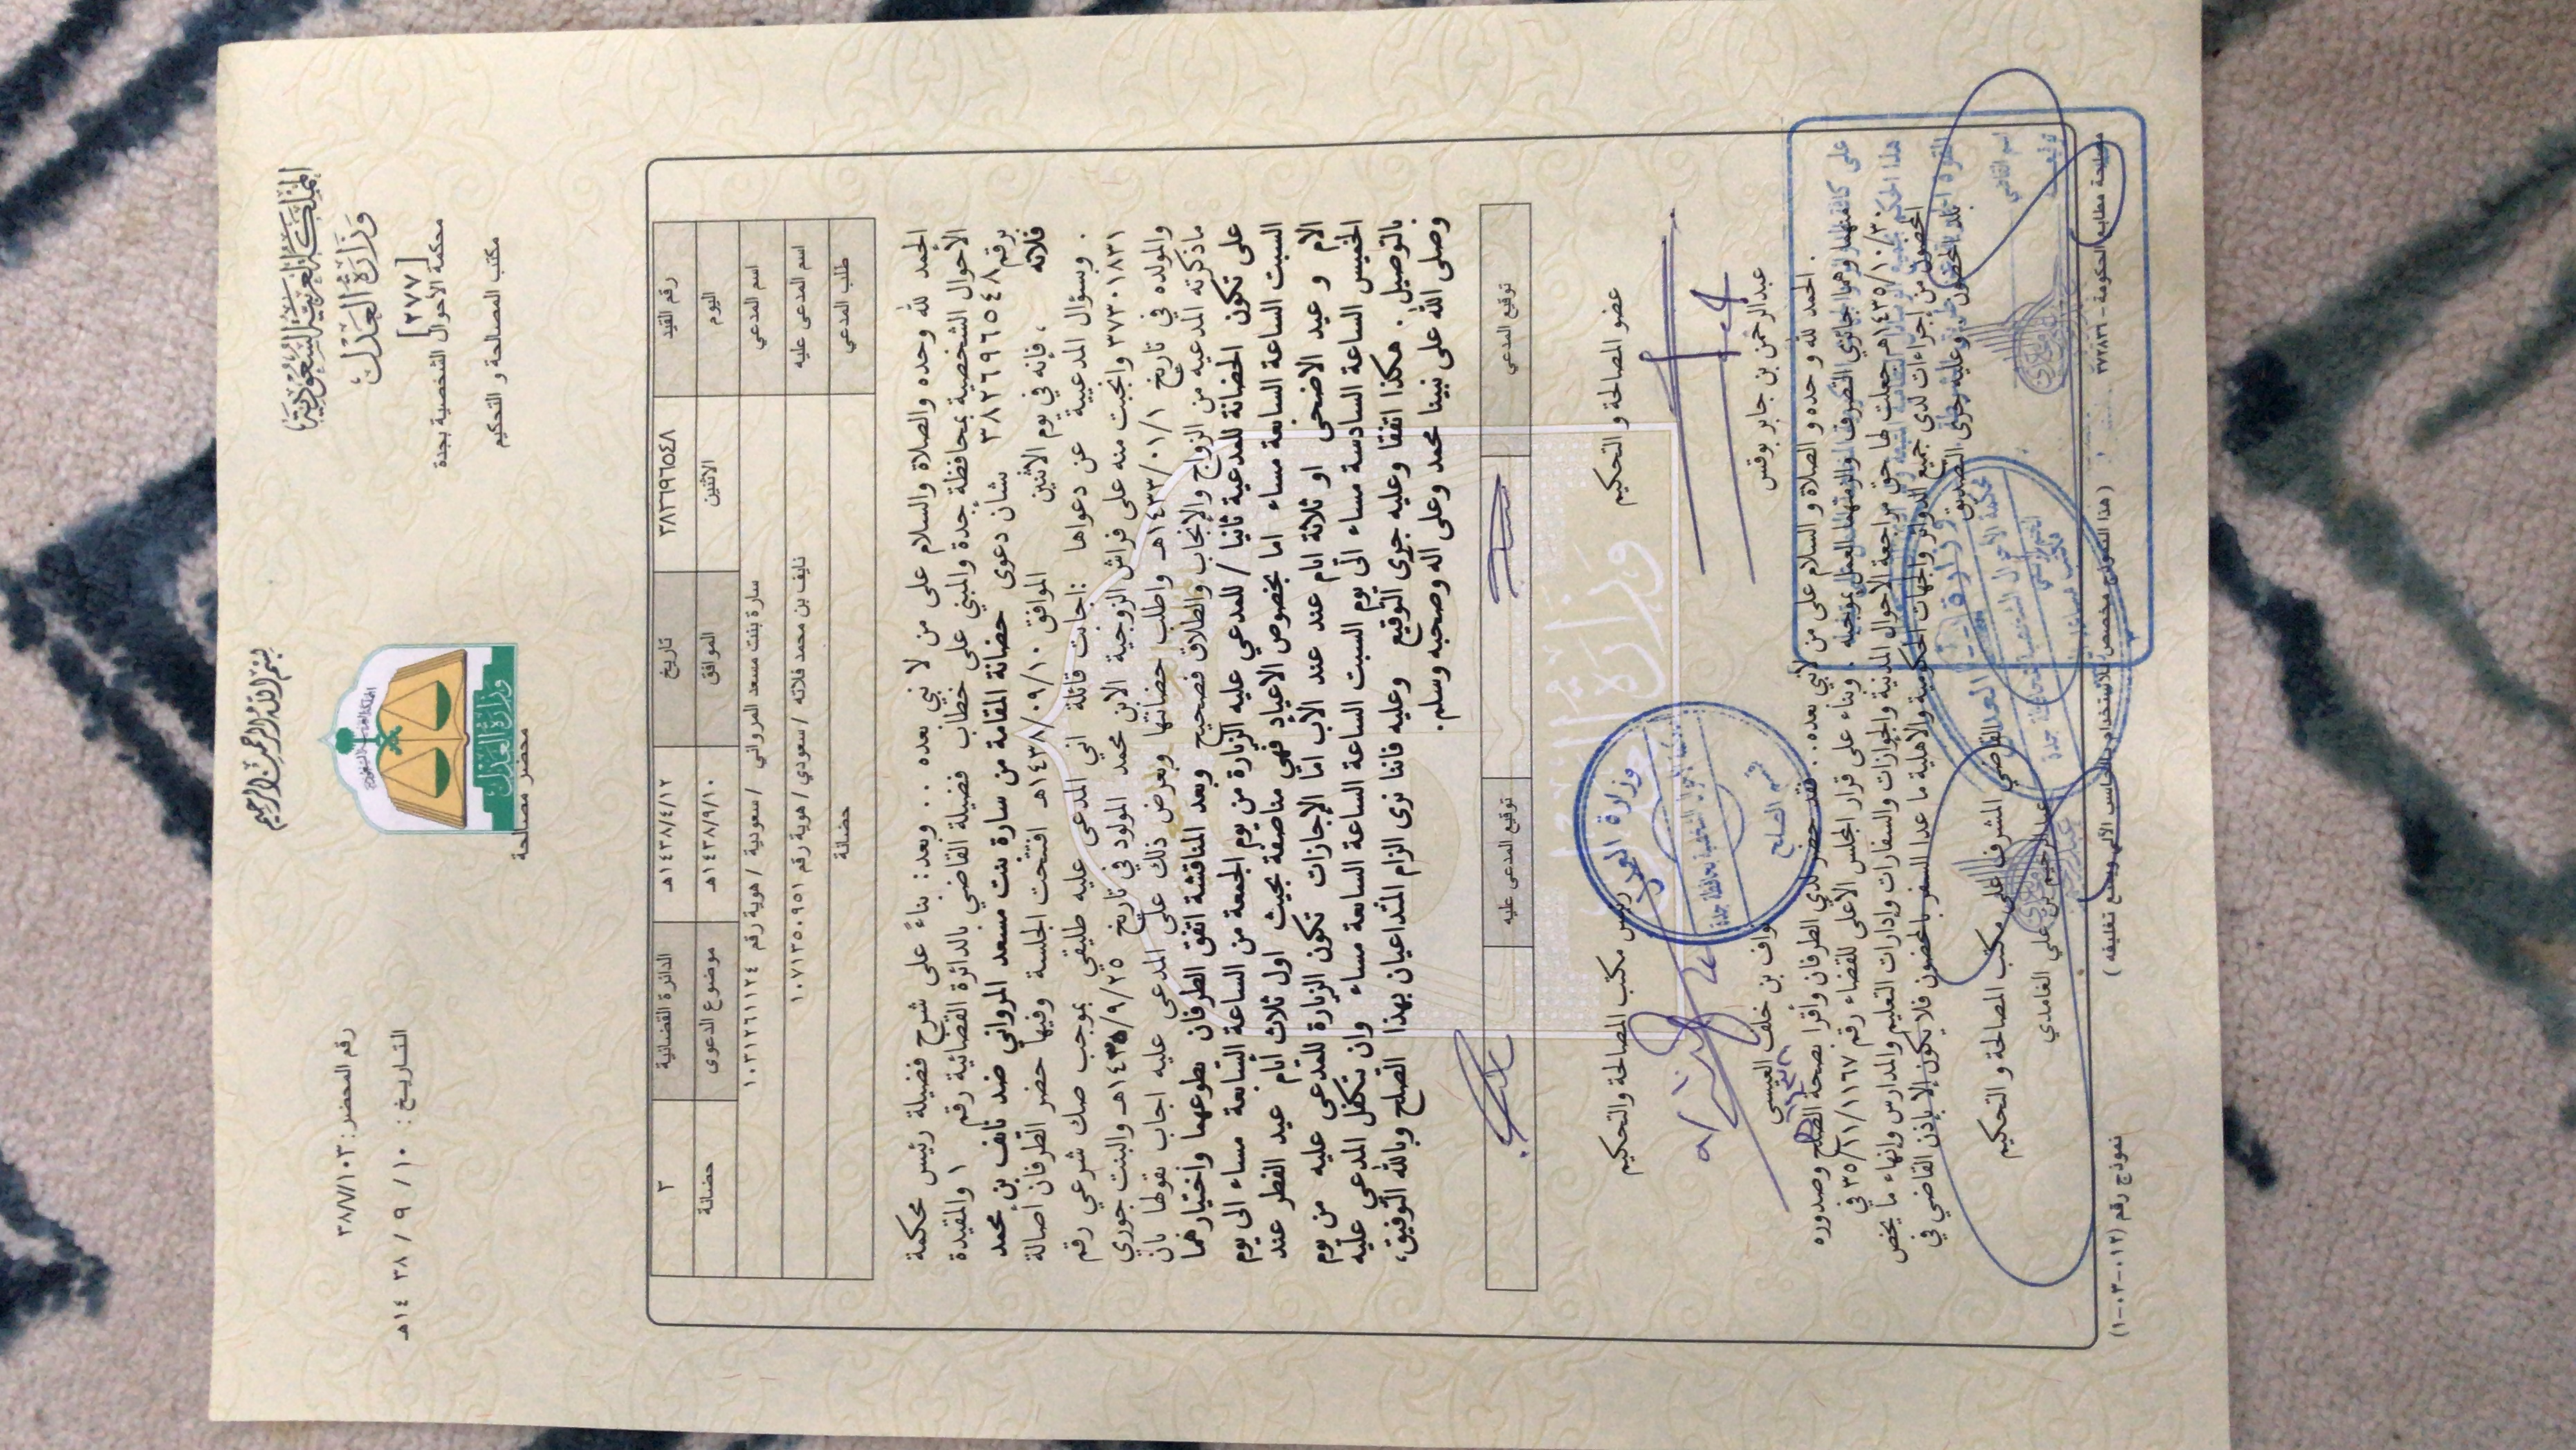 بسم الله الرحمن الرحيم
المملكة العربية السعودية
وزارة العدل
[٢٧٧]
محكمة الأحوال الشخصية بجدة
مكتب المصالحة و التحكيم
وزارة العدل
رقم المحضر: ٣٨/٧/١٠٣
التاريخ: ١٠ / ٩ / ١٤٣٨هـ
محضر مصالحة
رقم القيد ٣٨٢٦٩٦٥٤٨ تاريخ ١٤٣٨/٤/١٢هـ الدائرة القضائية ٣
اليوم الاثنين الموافق ١٤٣٨/٩/١٠هـ موضوع الدعوى حضانة
اسم المدعي سارة بنت مسعد المرواني / سعودية / هوية رقم ١٠٣١٢٦١١٢٤
اسم المدعى عليه نايف بن محمد فلاته / سعودي / هوية رقم ١٠٧١٣٥٠٩٥١
طلب المدعي حضانة
الحمد لله وحده والصلاة والسلام على من لا نبي بعده . . وبعد: بناءً على شرح فضيلة رئيس محكمة
الأحوال الشخصية بمحافظة جدة والمبني على خطاب فضيلة القاضي بالدائرة القضائية رقم ١ والمقيدة
برقم ٣٨٢٦٩٦٥٤٨ بشان دعوى حضانة المقامة من سارة بنت مسعد المرواني ضد نايف بن محمد
فلاته ، فإنه في يوم الاثنين الموافق ١٤٣٨/٠٩/١٠هـ افتتحت الجلسة وفيها حضر الطرفان اصالة
. وبسؤال المدعيية عن دعواها :اجابت قائلة اني المدعى عليه طليقي بموجب صك شرعي رقم
٣٧٣٠١٨٣١ وانجبت منه على فراش الزوجية الابن محمد المولود في تاريخ ١٤٣٥/٩/٢٥هـ والبنت جوري
والمولده في تاريخ ١٤٣٣/٠١/١هـ واطلب حضانتها وبعرض ذلك على المدعى عليه اجاب بقوها بان
ماذكرته المدعيه من الزواج والإنجاب والطلاق فصحيح وبعد المناقشة اتفق الطرفان بطوعهما واختيارهما
على تكون الحضانة للمدعية ثانيا / للمدعي عليه الزيارة من يوم الجمعة من الساعة السابعة مساء الى يوم
السبت الساعة السابعة مساء اما بخصوص الاعياد فهي مناصفة بحيث اول ثلاث أيام عيد الفطر عند
الام و عيد الاضحى او ثلاثة ايام عند عند الأب اما الإجازات تكون الزيارة للمدعى عليه من يوم
الخميس الساعة السادسة مساء الى يوم السبت الساعة الساعة السابعة مساء وان تتكفل المدعى عليه
بالتوصيل . هكذا اتفقا وعليه جرى التوقيع وعليه فاننا نرى الزام المتداعيان بهذا الصلح وبالله التوفيق،
وصلى الله على نبينا محمد وعلى اله وصحبه وسلم.
توقيع المدعي توقيع المدعى عليه
عضو المصالحة و التحكيم رئيس مكتب المصالحة والتحكيم
عبدالرحمن بن جابر بوقس نواف بن خلف العيسى
وزارة العدل
قسم الصلح
الحمد لله و حده و الصلاة و السلام على من لانبي بعده . . فقد حضر لدي الطرفان وأقرا بصحة الصلح وصدوره
وهما جائزي التصرف والزمتهما العمل بموجبه . وبناء على قرار المجلس الأعلى للقضاء رقم ٣٥/١١/١١٦٧ في
١٤٣٥/١٠/٣٠هـ جعلت لها حق مراجعة الاحوال المدنية والجوازات والسفارات وإدارات التعليم والمدارس وإنهاء ما يخص
المحضون من إجراءات لدى جميع الدوائر والجهات الحكومية والاهلية ما عدا السفر بالمحضون فلا يكون إلا بإذن القاضي في
بلد المحضون وعليه جرى التصديق
القاضي المشرف على مكتب المصالحة و التحكيم
عبدالرحيم بن علي الغامدي
اسم القاضي
توقيعه
نموذج رقم (١٢-٠٣-١) ( هذا النموذج مخصص للاستخدام بالحاسب الآلي ويمنع تغليفه ) مصلحة مطابع الحكومة - ٣٧٢٨٣٦